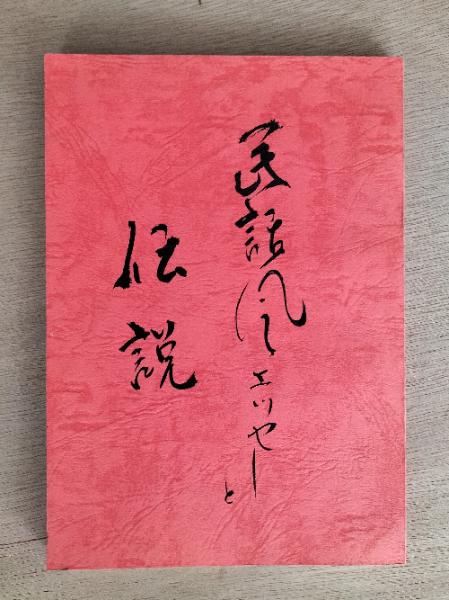 民話風エッセーと
伝説